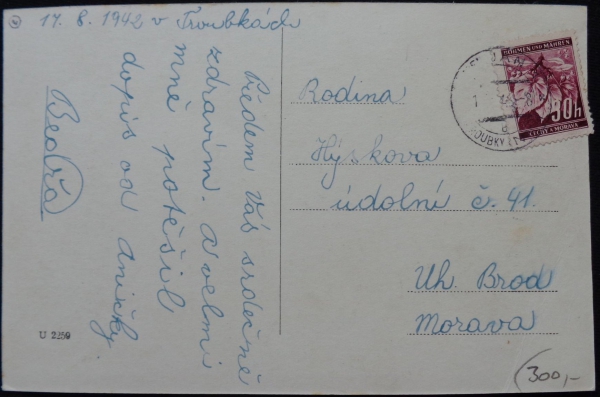 17. 8. 1942 v Troubkách
Předem Vás srdečně
zdravím. A velmi
mně potěšil
dopis od Aničky.
Beďa
U 2259
Rodina
Hýskova
údolní č. 41.
Uh. Brod
Morava
BÖHMEN UND MÄHREN
30h
ČECHY A MORAVA
300,-